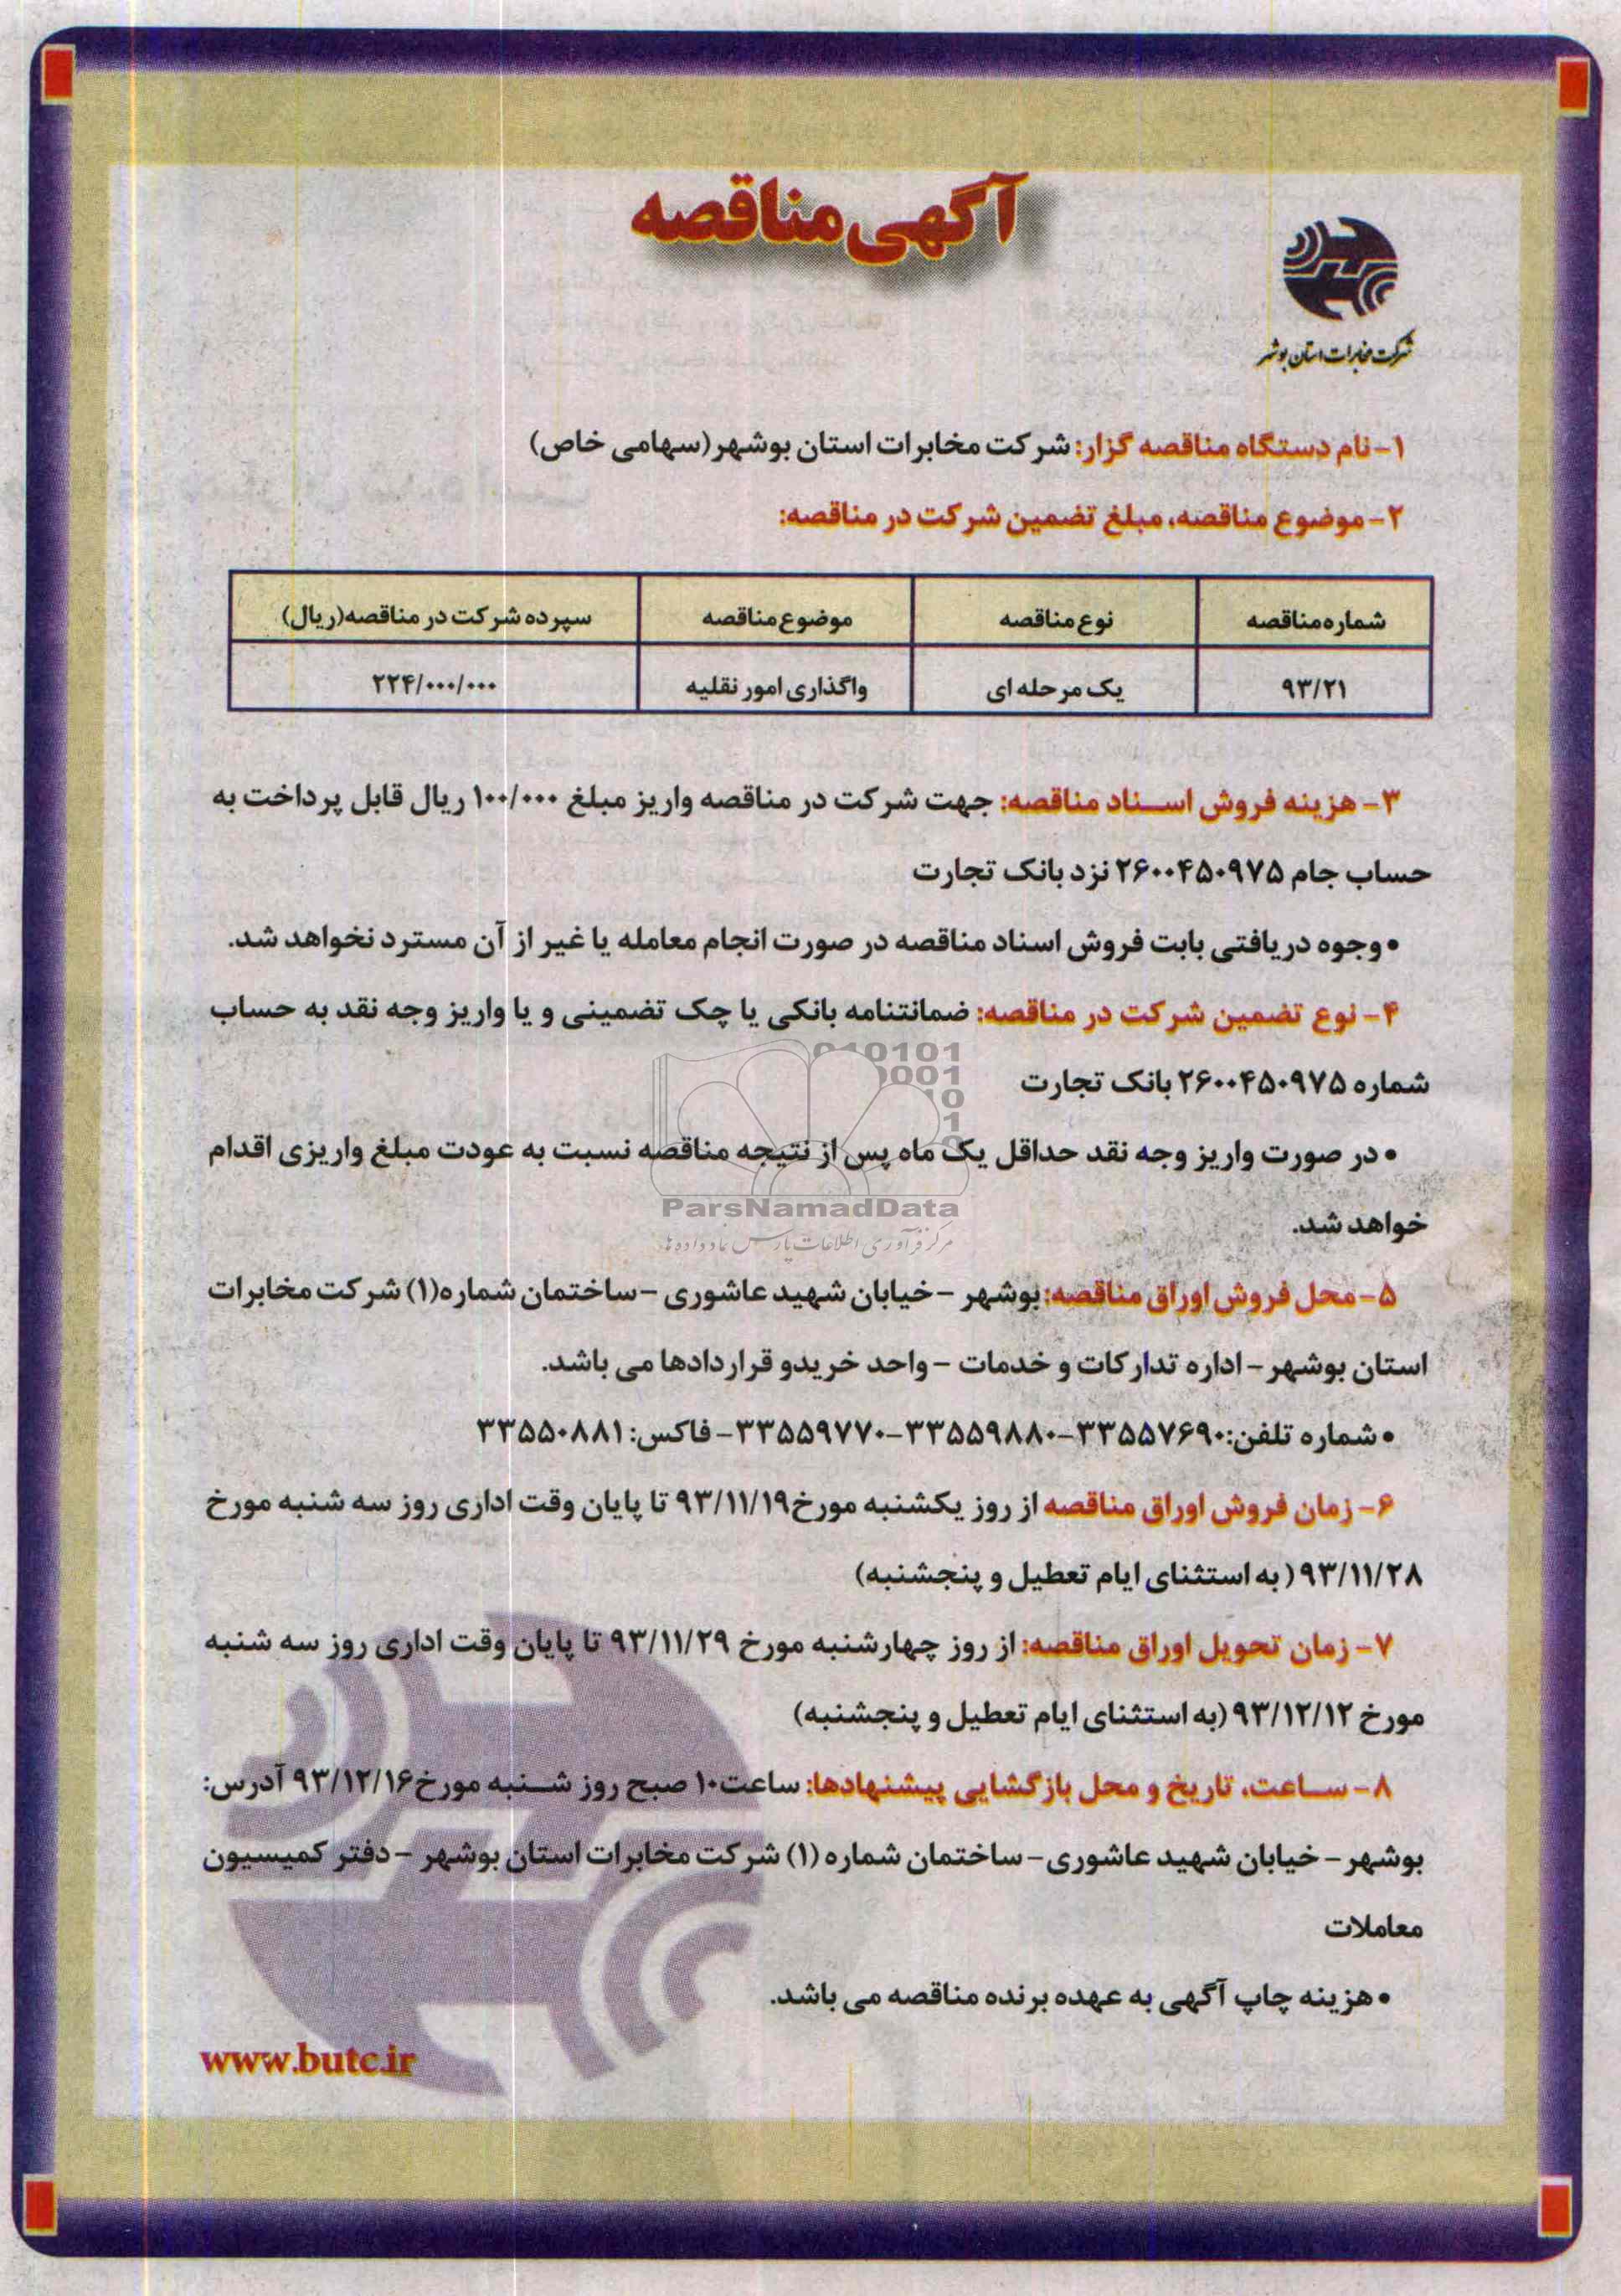 آگهی مناقصه
شرکت مخابرات استان بوشهر
۱- نام دستگاه مناقصه گزار: شرکت مخابرات استان بوشهر(سهامی خاص)
۲- موضوع مناقصه، مبلغ تضمین شرکت در مناقصه:
شماره مناقصه نوع مناقصه موضوع مناقصه سپرده شرکت در مناقصه(ریال)
۹۳/۲۱ یک مرحله ای واگذاری امور نقلیه ۲۲۴/۰۰۰/۰۰۰
۳- هزینه فروش اسناد مناقصه: جهت شرکت در مناقصه واریز مبلغ ۱۰۰/۰۰۰ ریال قابل پرداخت به
حساب جام ۲۶۰۰۴۵۰۹۷۵ نزد بانک تجارت
• وجوه دریافتی بابت فروش اسناد مناقصه در صورت انجام معامله یا غیر از آن مسترد نخواهد شد.
۴- نوع تضمین شرکت در مناقصه: ضمانتنامه بانکی یا چک تضمینی و یا واریز وجه نقد به حساب
شماره ۲۶۰۰۴۵۰۹۷۵ بانک تجارت
• در صورت واریز وجه نقد حداقل یک ماه پس از نتیجه مناقصه نسبت به عودت مبلغ واریزی اقدام
ParsNamadData
خواهد شد.
مرکز فرآوری اطلاعات پارس نماد داده ها
۵- محل فروش اوراق مناقصه: بوشهر - خیابان شهید عاشوری - ساختمان شماره(۱) شرکت مخابرات
استان بوشهر - اداره تدارکات و خدمات - واحد خریدو قراردادها می باشد.
• شماره تلفن: ۳۳۵۵۷۶۹۰-۳۳۵۵۹۸۸۰-۳۳۵۵۹۷۷۰- فاکس: ۳۳۵۵۰۸۸۱
۶- زمان فروش اوراق مناقصه از روز یکشنبه مورخ۹۳/۱۱/۱۹ تا پایان وقت اداری روز سه شنبه مورخ
۹۳/۱۱/۲۸ (به استثنای ایام تعطیل و پنجشنبه)
۷- زمان تحویل اوراق مناقصه: از روز چهارشنبه مورخ ۹۳/۱۱/۲۹ تا پایان وقت اداری روز سه شنبه
مورخ ۹۳/۱۲/۱۲ (به استثنای ایام تعطیل و پنجشنبه)
۸- ساعت، تاریخ و محل بازگشایی پیشنهادها: ساعت۱۰ صبح روز شنبه مورخ۹۳/۱۲/۱۶ آدرس:
بوشهر - خیابان شهید عاشوری- ساختمان شماره (۱) شرکت مخابرات استان بوشهر - دفتر کمیسیون
معاملات
• هزینه چاپ آگهی به عهده برنده مناقصه می باشد.
www.butc.ir